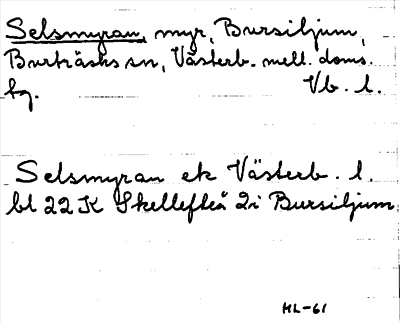 Selsmyran, myr, Bursiljum,
Burträsks sn, Västerb. mell. doms.
fg. Vb. l.
Selsmyran ek Västerb. l.
bl 22 K Skellefteå 2i Bursiljum
ML-61